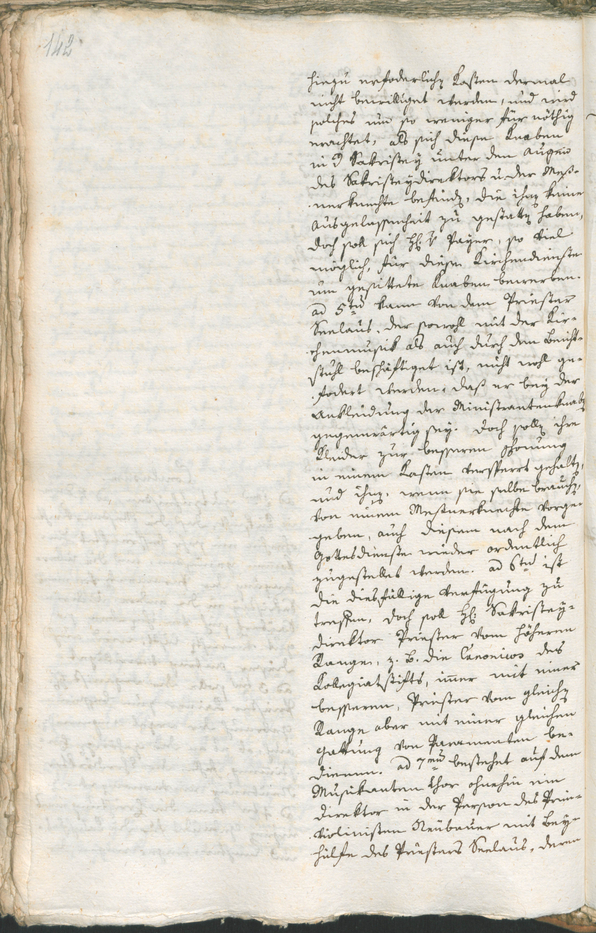 142
hiezu erfoderlichen Kosten dermal
nicht bewilliget werden, und wird
solches um so weniger für nöthig
erachtet, als sich diese Knaben
in d Sakristey unter den Augen
des Sakristeydirektors u. der Meß-
nerknechte befinden, die ihnen keine
Ausgelassenheit zu gestatten haben,
doch soll sich H. Payer, so viel
möglich, für diese Kirchendienste
um gesittete Knaben bewerben.
ad 5tu kann von dem Priester
Seelaus, der sowohl mit der Kir-
chenmusik als auch durch den Beicht-
stuhl beschäftiget ist, nicht wohl ge-
fodert werden, daß er bey der
Ankleidung der Ministrantenknaben
gegenwärtig sey. Doch sollen ihre
Kleider zur besseren Schonung
in einem Kasten versperrt gehalten,
und ihnen, wenn sie selbe brauchen,
von einem Meßnerknechte vorge-
geben, auch diesem nach dem
Gottesdienste wieder ordentlich
zugestellet werden. ad 6tu ist
die diesfällige Verfügung zu
treffen, doch soll H. Sakristey-
direktor Priester vom höheren
Range, z. B. die Canonicos des
Kollegiatstifts, immer mit einer
besseren, Priester vom gleichen
Range aber mit einer gleichen
Gattung von Paramenten be-
dienen. ad 7mu bestehet auf dem
Musikanten Chor ohnehin ein
Direktor in der Person des Prim-
Violinisten Neubauer mit Bey-
hülfe des Priesters Seelaus, deren